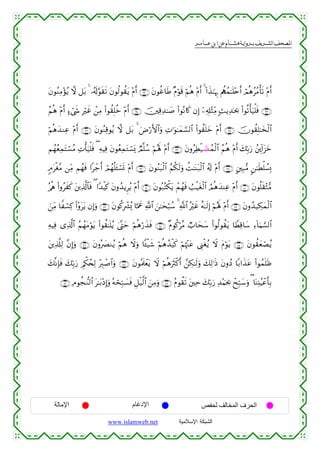 المصحف الشريف برواية هشام عن ابن عامر
أَمْ تَأْمُرُهُمْ أَحْلَٰمُهُم بِهَٰذَا ۚ أَمْ هُمْ قَوْمٌ طَاغُونَ ۝ أَمْ يَقُولُونَ تَقَوَّلَهُۥ ۚ بَل لَّا يُؤْمِنُونَ
۝ فَلْيَأْتُوا۟ بِحَدِيثٍ مِّثْلِهِۦٓ إِن كَانُوا۟ صَٰدِقِينَ ۝ أَمْ خُلِقُوا۟ مِنْ غَيْرِ شَىْءٍ أَمْ هُمُ
ٱلْخَٰلِقُونَ ۝ أَمْ خَلَقُوا۟ ٱلسَّمَٰوَٰتِ وَٱلْأَرْضَ ۚ بَل لَّا يُوقِنُونَ ۝ أَمْ عِندَهُمْ
خَزَآئِنُ رَبِّكَ أَمْ هُمُ ٱلْمُسَيْطِرُونَ ۝ أَمْ لَهُمْ سُلَّمٌ يَسْتَمِعُونَ فِيهِ ۖ فَلْيَأْتِ مُسْتَمِعُهُم
بِسُلْطَٰنٍ مُّبِينٍ ۝ أَمْ لَهُ ٱلْبَنَٰتُ وَلَكُمُ ٱلْبَنُونَ ۝ أَمْ تَسْـَٔلُهُمْ أَجْرًا فَهُم مِّن مَّغْرَمٍ
مُّثْقَلُونَ ۝ أَمْ عِندَهُمُ ٱلْغَيْبُ فَهُمْ يَكْتُبُونَ ۝ أَمْ يُرِيدُونَ كَيْدًا ۖ فَٱلَّذِينَ كَفَرُوا۟ هُمُ
ٱلْمَكِيدُونَ ۝ أَمْ لَهُمْ إِلَٰهٌ غَيْرُ ٱللَّهِ ۚ سُبْحَٰنَ ٱللَّهِ عَمَّا يُشْرِكُونَ ۝ وَإِن يَرَوْا۟ كِسْفًا مِّنَ
ٱلسَّمَآءِ سَاقِطًا يَقُولُوا۟ سَحَابٌ مَّرْكُومٌ ۝ فَذَرْهُمْ حَتَّىٰ يُلَٰقُوا۟ يَوْمَهُمُ ٱلَّذِى فِيهِ
يُصْعَقُونَ ۝ يَوْمَ لَا يُغْنِى عَنْهُمْ كَيْدُهُمْ شَيْـًٔا وَلَا هُمْ يُنصَرُونَ ۝ وَإِنَّ لِلَّذِينَ
ظَلَمُوا۟ عَذَابًا دُونَ ذَٰلِكَ وَلَٰكِنَّ أَكْثَرَهُمْ لَا يَعْلَمُونَ ۝ وَٱصْبِرْ لِحُكْمِ رَبِّكَ فَإِنَّكَ
بِأَعْيُنِنَا ۖ وَسَبِّحْ بِحَمْدِ رَبِّكَ حِينَ تَقُومُ ۝ وَمِنَ ٱلَّيْلِ فَسَبِّحْهُ وَإِدْبَٰرَ ٱلنُّجُومِ ۝
الحرف المخالف لحفص الإدغام الإمالة
www.islamweb.net الشبكة الإسلامية